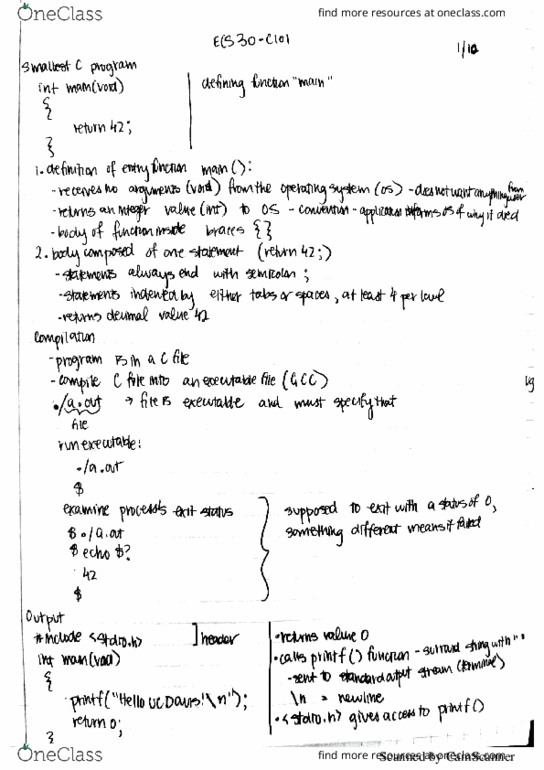 OneClass
find more resources at oneclass.com
ECS 30 - C101
1/10
Smallest C program
int main(void)
{
return 42;
}
defining function "main"
1. definition of entry function main():
- receives no arguments (void) from the operating system (OS) - does not want anything from user
- returns an integer value (int) to OS - convention - application informs OS of why it died
- body of function inside braces {}
2. body composed of one statement (return 42;)
- statements always end with semicolon ;
- statements indented by either tabs or spaces, at least 4 per level
- returns decimal value 42
Compilation
- program is in a C file
- compile C file into an executable file (GCC)
./a.out → file is executable and must specify that
file
run executable:
./a.out
$
examine process's exit status
$ ./a.out
$ echo $?
42
$
supposed to exit with a status of 0,
something different means it failed
Output
#include <stdio.h> ] header
int main(void)
{
printf("Hello UC Davis!\n");
return 0;
}
• returns value 0
• calls printf() function - surround string with " "
- sent to standard output stream (terminal)
\n = newline
• <stdio.h> gives access to printf()
OneClass
find more resources at oneclass.com
Scanned by CamScanner